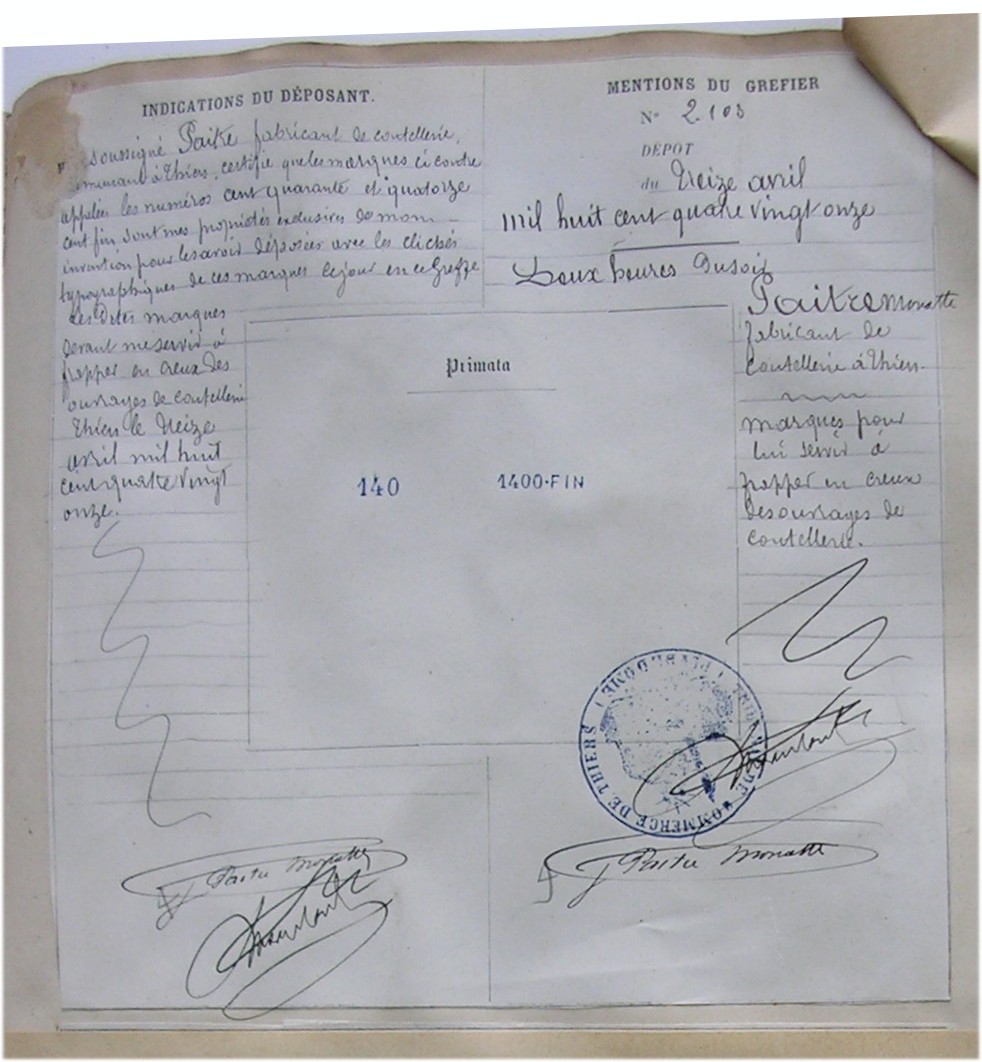 INDICATIONS DU DÉPOSANT.
soussigné Paitre fabricant de coutellerie,
à Thiers, certifie que les marques ci contre
appelées les numéros cent quarante et quatorze
cent fin sont mes propriétés exclusives de mon
invention pour les avoir déposées avec les clichés
typographiques de ces marques ce jour en ce Greffe
Les dites marques
devant me servir à
frapper en creux des
ouvrages de coutellerie
Thiers le Treize
avril mil huit
cent quatre vingt
onze.
MENTIONS DU GREFIER
N° 2.103
DÉPOT
du Treize avril
mil huit cent quatre vingt onze
Deux heures du soir
Paitre Monatte
fabricant de
coutellerie à Thiers.
marques pour
lui servir à
frapper en creux
des ouvrages de
coutellerie.
Primata
140 1400·FIN
COMMERCE DE THIERS (PUY-DE-DOME)
Paitre Monatte
Paitre Monatte